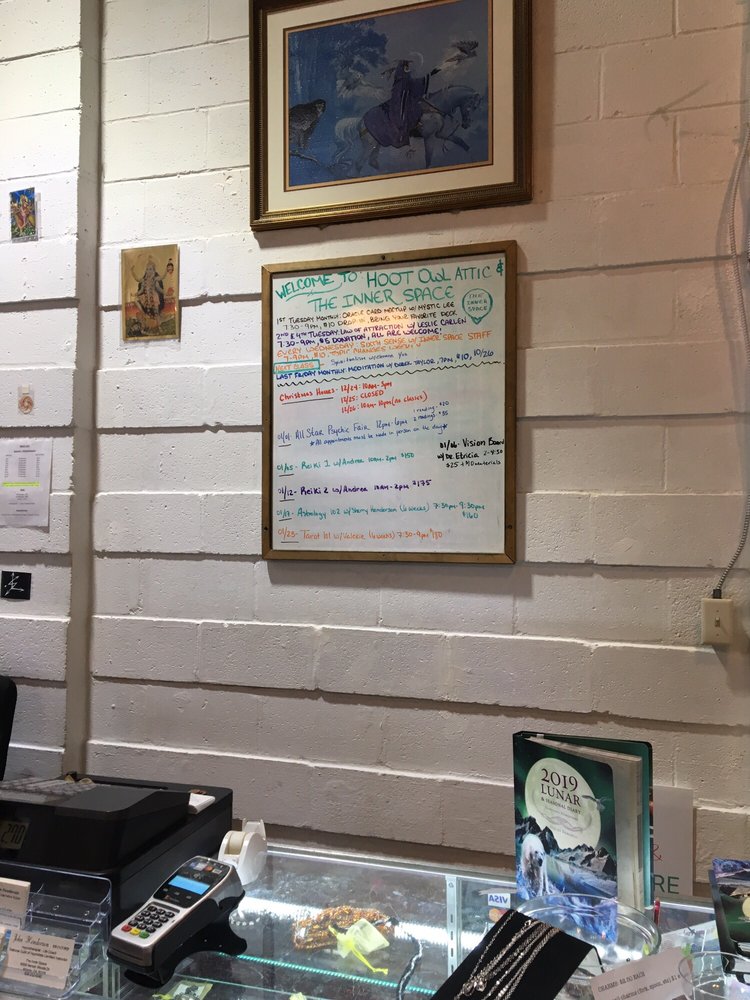 WELCOME TO: HOOT OWL ATTIC &
THE INNER SPACE
THE
INNER
SPACE
1ST TUESDAY MONTHLY: ORACLE CARD MEETUP W/ MYSTIC LEE
7:30-9PM, $10 DROP-IN, BRING YOUR FAVORITE DECK
2ND & 4TH TUESDAY LAW OF ATTRACTION W/ LESLIE CARLEN
7:30-9PM, $5 DONATION, ALL ARE WELCOME!
EVERY WEDNESDAY: SIXTH SENSE W/ INNER SPACE STAFF
7-9PM, $10, TOPIC CHANGES
NEXT CLASS:
LAST FRIDAY MONTHLY: MEDITATION W/ TAYLOR, 7PM, $10, 10/26
Christmas Hours - 12/24: 10am-3pm
12/25: CLOSED
12/26: 10am-10pm (no classes)
01/01- All Star Psychic Fair 12pm-6pm
1 reading - $20
2 readings $35
*All appointments must be made in person on the day*
01/06- Vision Board
w/ Dr. Ebricia 2-4:30
$25 + $10 materials
01/05- Reiki 1 w/ Andrea 10am-2pm $150
01/12- Reiki 2 w/ Andrea 10am-2pm $175
01/17- Astrology 102 w/ Sherry Henderson (6 weeks) 7:30pm-9:30pm
$160
01/23- Tarot 101 w/ Valerie (6 weeks) 7:30-9pm $180
2019
LUNAR
& SEASONAL DIARY
VISA
&
RE
John Henderson